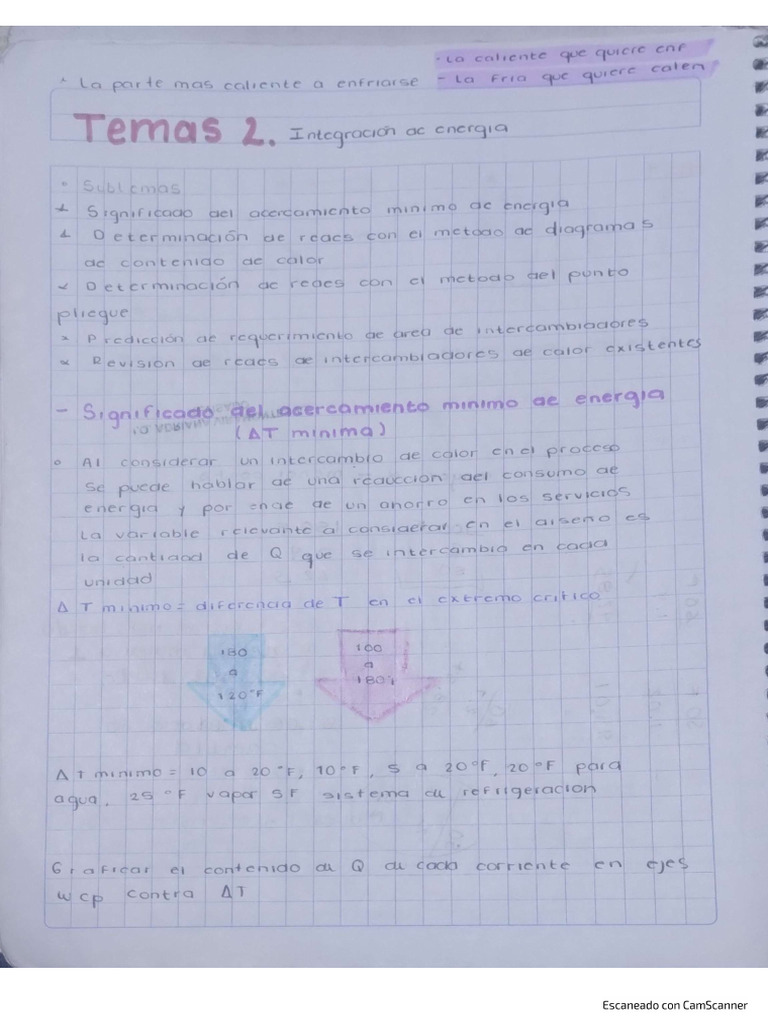 - La caliente que quiere enf
· La parte mas caliente a enfriarse - La Fria que quiere calen
Temas 2. Integración de energia
· Subtemas
* Significado del acercamiento minimo de energia
* Determinación de redes con el metodo de diagramas
de contenido de calor
* Determinación de redes con el metodo del punto
pliegue
* Predicción de requerimiento de area de intercambiadores
* Revision de redes de intercambiadores de calor existentes
- Significado del acercamiento minimo de energia
(ΔT minima)
° Al considerar un intercambio de calor en el proceso
se puede hablar de una reduccion del consumo de
energia y por ende de un ahorro en los servicios
La variable relevante a considerar en el diseño es
la cantidad de Q que se intercambia en cada
unidad
Δ T minimo = diferencia de T en el extremo critico
180
a
120°F
100
a
180°F
Δ T minimo = 10 a 20°F, 10°F, 5 a 20°F, 20°F para
agua, 25°F vapor 5F sistema de refrigeracion
Graficar el contenido de Q de cada corriente en ejes
w cp contra ΔT
Escaneado con CamScanner